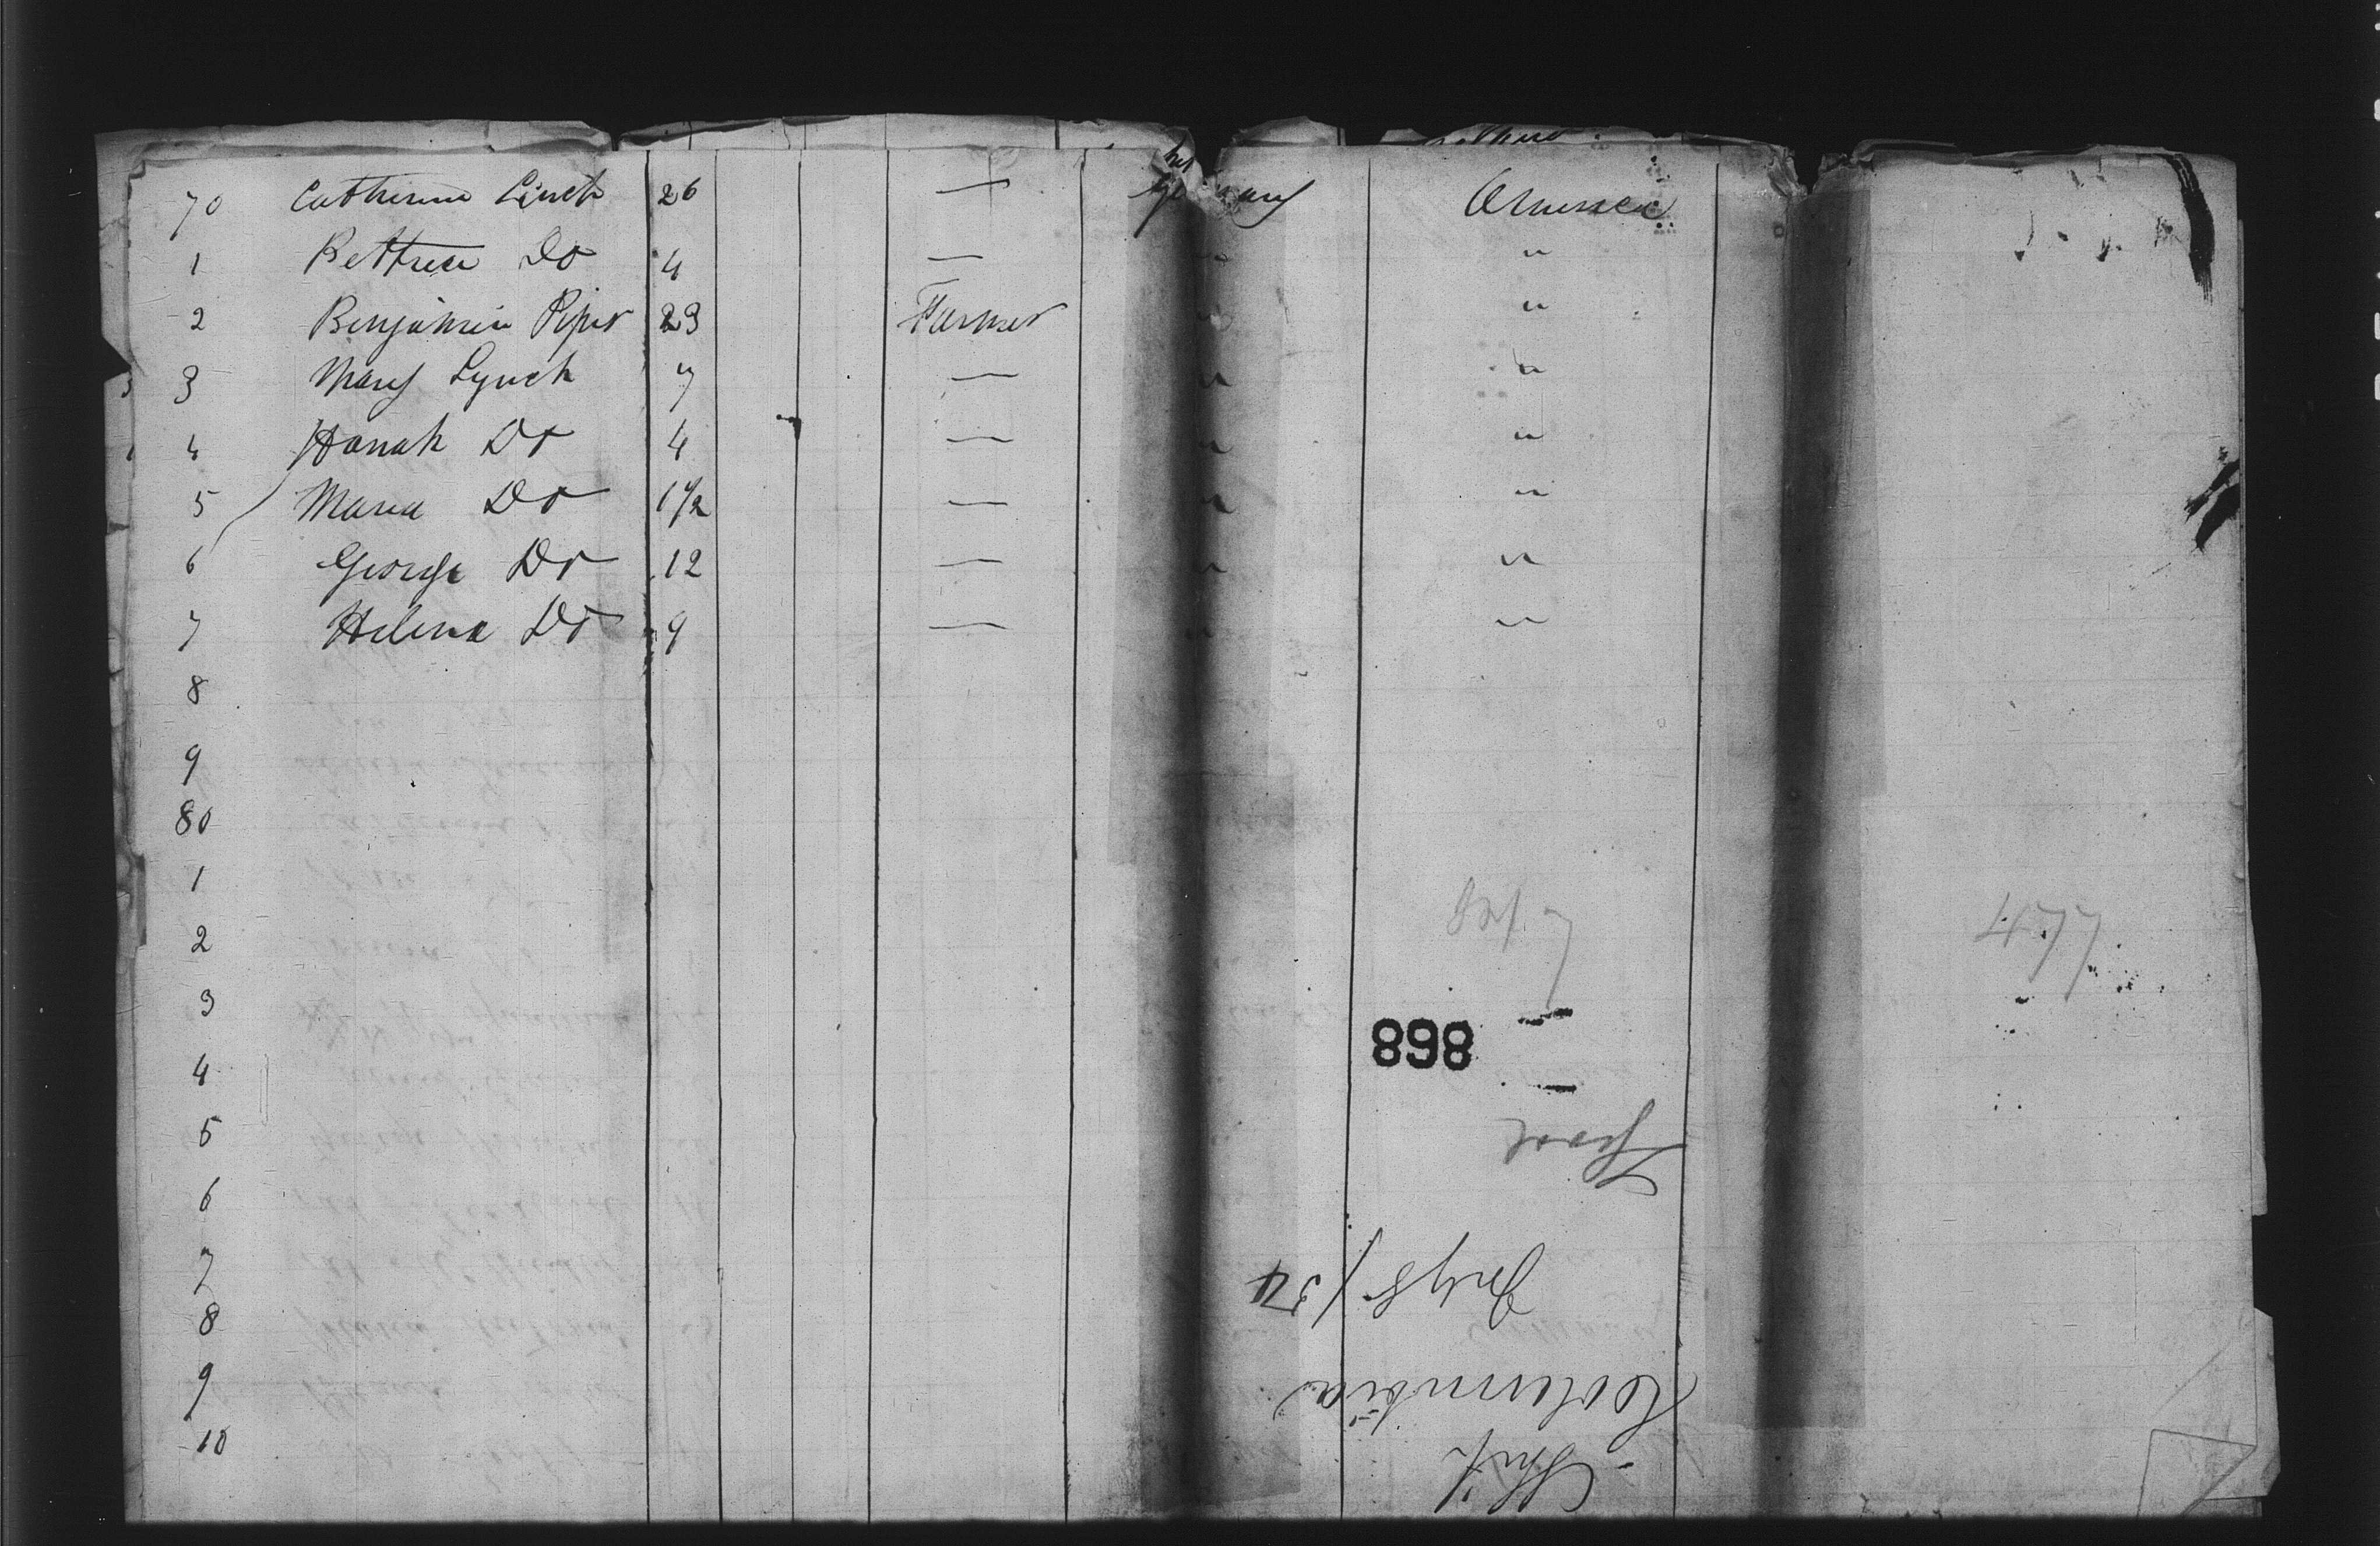 70 Catherine Linch 26 — Germany America
1 Do 4 — " "
2 Benjamin Piper 23 Farmer " "
3 Mary Lynch 7 — " "
4 Hanah Do 4 — " "
5 Maria Do 1 1/2 — " "
6 George Do 12 — " "
7 Helena Do 9 — " "
8
9
80
1
2
3
4
5
6
7
8
9
10
477
898
Ship
Columbia
July 8/54